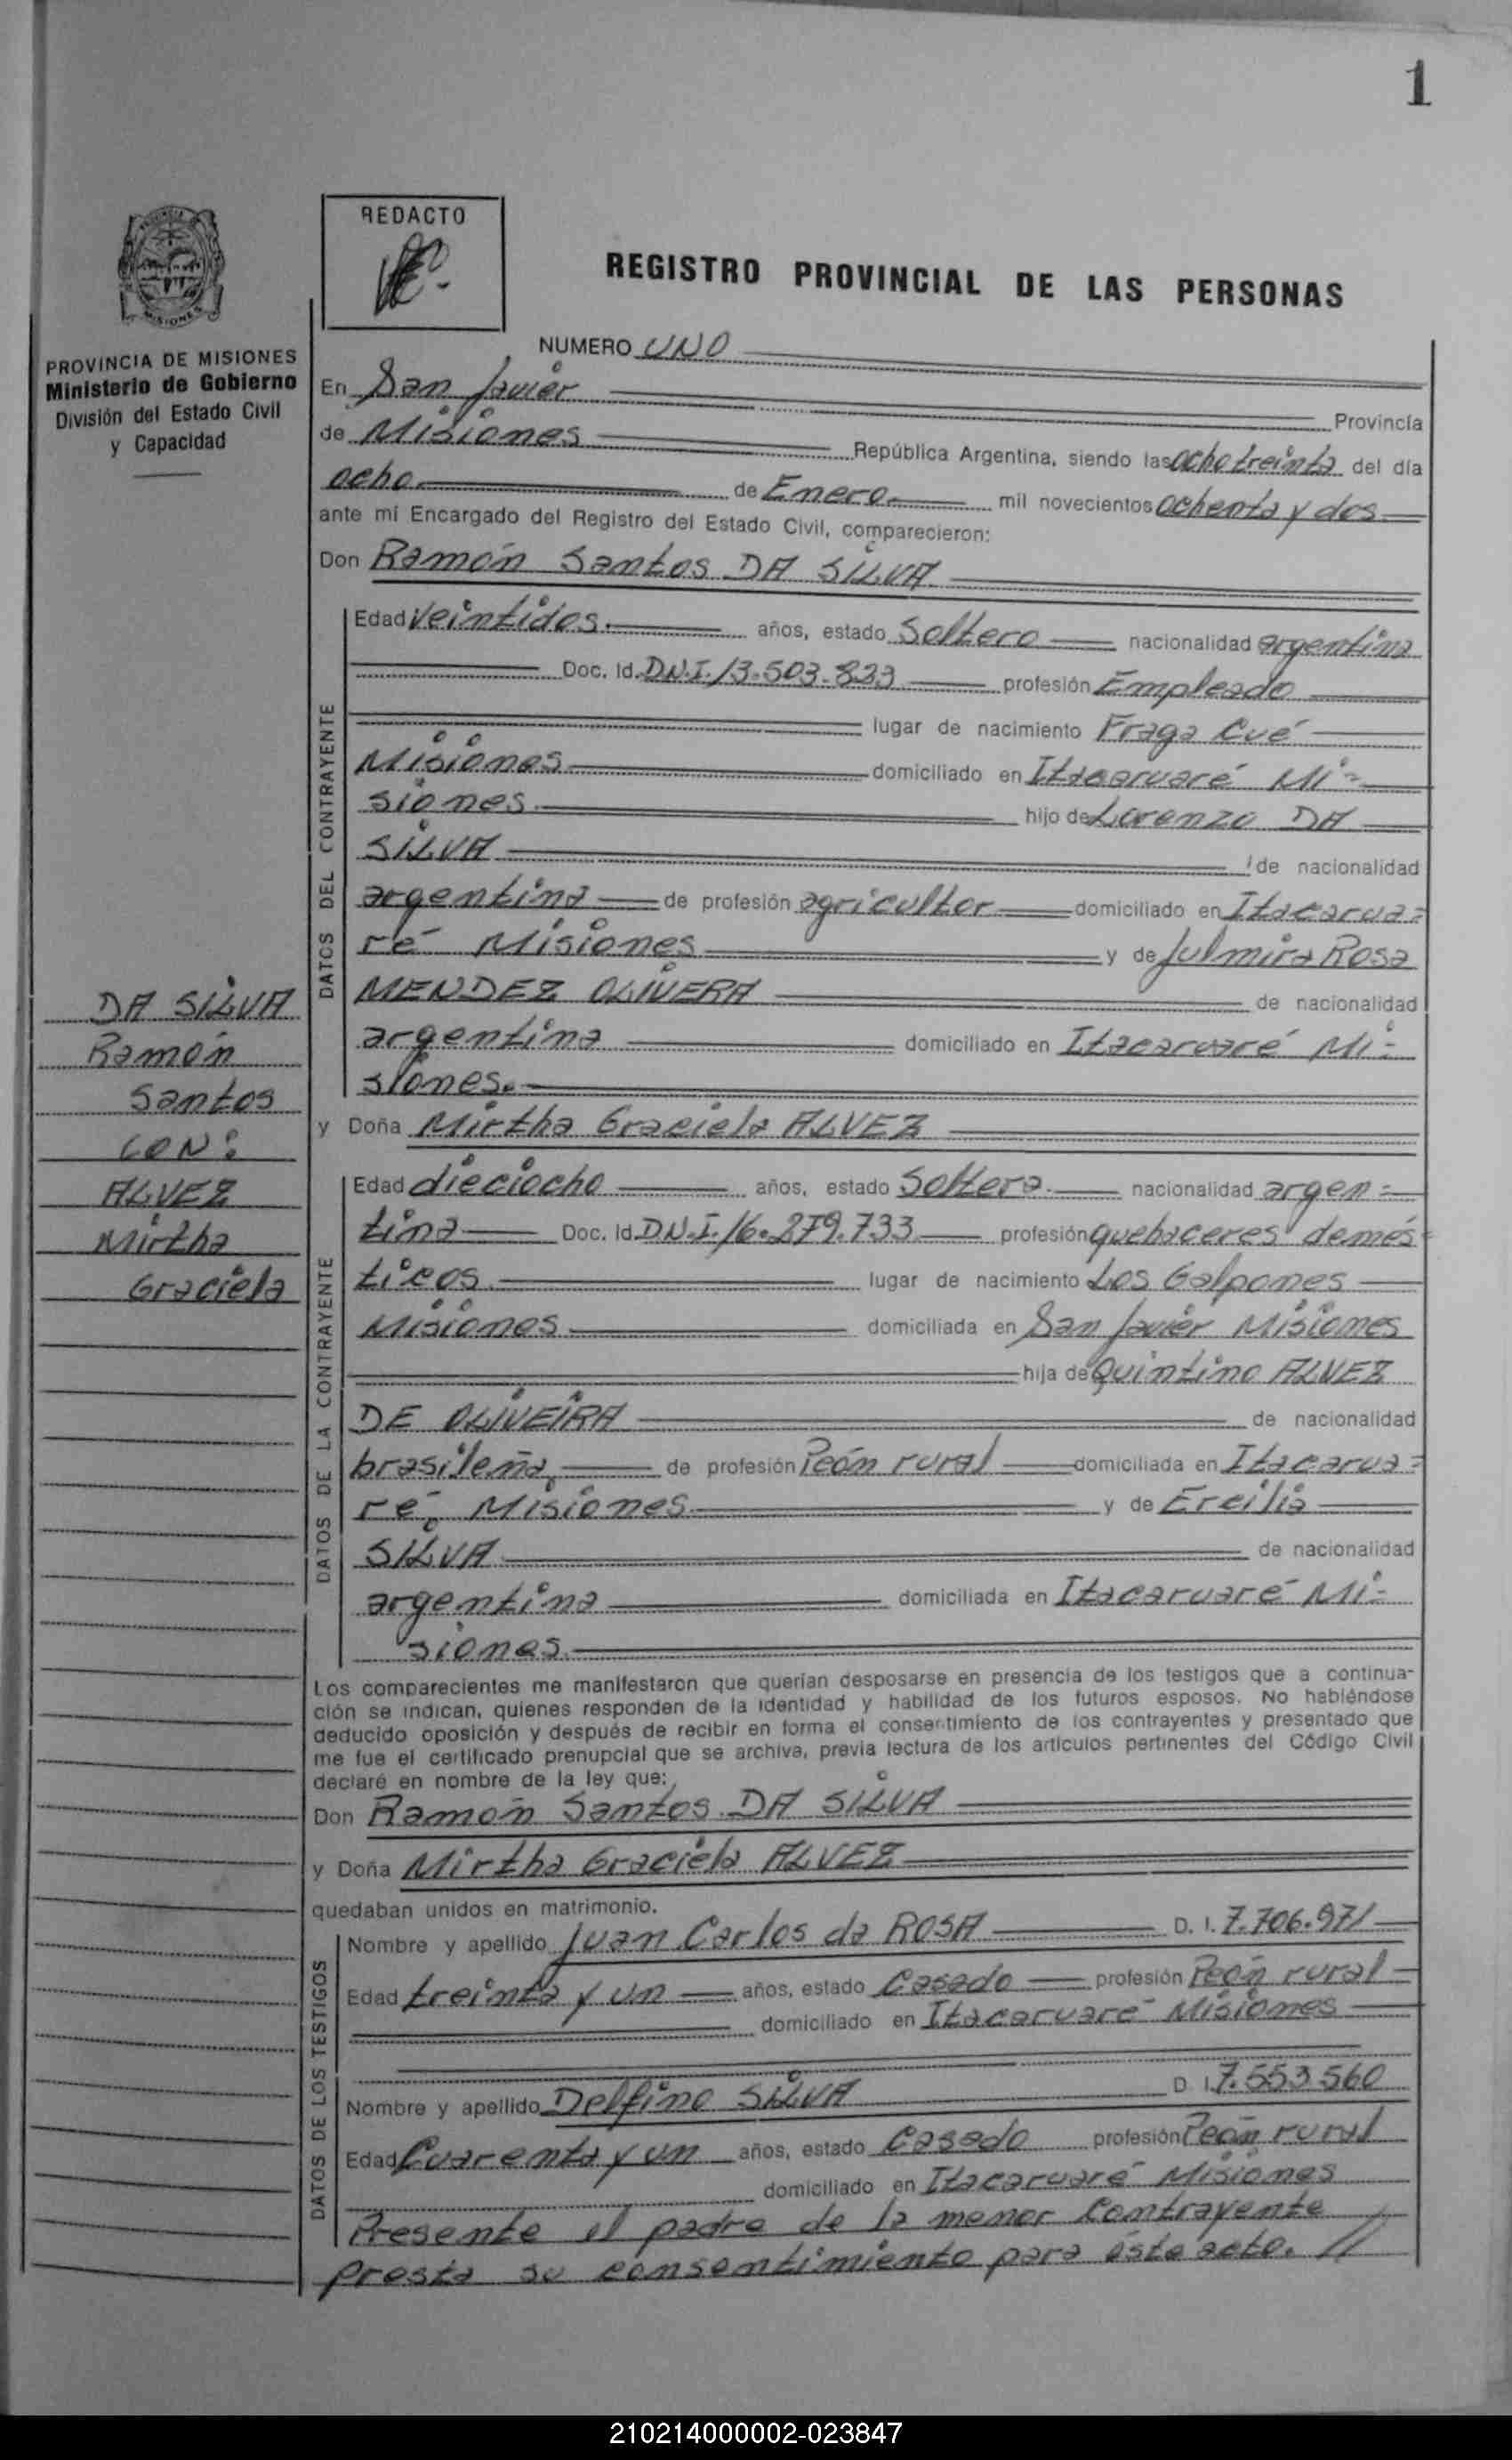 1
REDACTO
REGISTRO PROVINCIAL DE LAS PERSONAS
PROVINCIA DE MISIONES
Ministerio de Gobierno
División del Estado Civil
y Capacidad
NUMERO UNO
En San Javier Provincia
de Misiones República Argentina, siendo las ocho treinta del día
ocho de Enero mil novecientos ochenta y dos
ante mí Encargado del Registro del Estado Civil, comparecieron:
Don Ramón Santos DA SILVA
DATOS DEL CONTRAYENTE
Edad Veintidos años, estado Soltero nacionalidad argentina
Doc. Id. D.N.I. 13.503.833 profesión Empleado
lugar de nacimiento Fraga Cué
Misiones domiciliado en Itacaruaré Mi=
siones hijo de Lorenzo DA
SILVA de nacionalidad
argentina de profesión agricultor domiciliado en Itacarua=
ré Misiones y de Julmira Rosa
MENDEZ OLIVERA de nacionalidad
argentina domiciliado en Itacaruaré Mi=
siones.
y Doña Mirtha Graciela ALVEZ
DA SILVA
Ramón
Santos
CON:
ALVEZ
Mirtha
Graciela
DATOS DE LA CONTRAYENTE
Edad dieciocho años, estado Soltera nacionalidad argen=
tina Doc. Id. D.N.I. 16.279.733 profesión quehaceres domés
ticos lugar de nacimiento Los Galpones
Misiones domiciliada en San Javier Misiones
hija de Quintino ALVEZ
DE OLIVEIRA de nacionalidad
brasileña de profesión Peón rural domiciliada en Itacarua=
ré Misiones y de Ercilia
SILVA de nacionalidad
argentina domiciliada en Itacaruaré Mi=
siones.
Los comparecientes me manifestaron que querían desposarse en presencia de los testigos que a continua-
ción se indican, quienes responden de la identidad y habilidad de los futuros esposos. No habiéndose
deducido oposición y después de recibir en forma el consentimiento de los contrayentes y presentado que
me fue el certificado prenupcial que se archiva, previa lectura de los artículos pertinentes del Código Civil
declaré en nombre de la ley que:
Don Ramón Santos DA SILVA
y Doña Mirtha Graciela ALVEZ
quedaban unidos en matrimonio.
DATOS DE LOS TESTIGOS
Nombre y apellido Juan Carlos da ROSA D. I. 7.706.971
Edad treinta y un años, estado Casado profesión Peón rural
domiciliado en Itacaruaré Misiones
Nombre y apellido Delfino SILVA D. I. 7.553 560
Edad Cuarenta y un años, estado Casado profesión Peón rural
domiciliado en Itacaruaré Misiones
Presente el padre de la menor contrayente
presta su consentimiento para éste acto. //
210214000002-023847